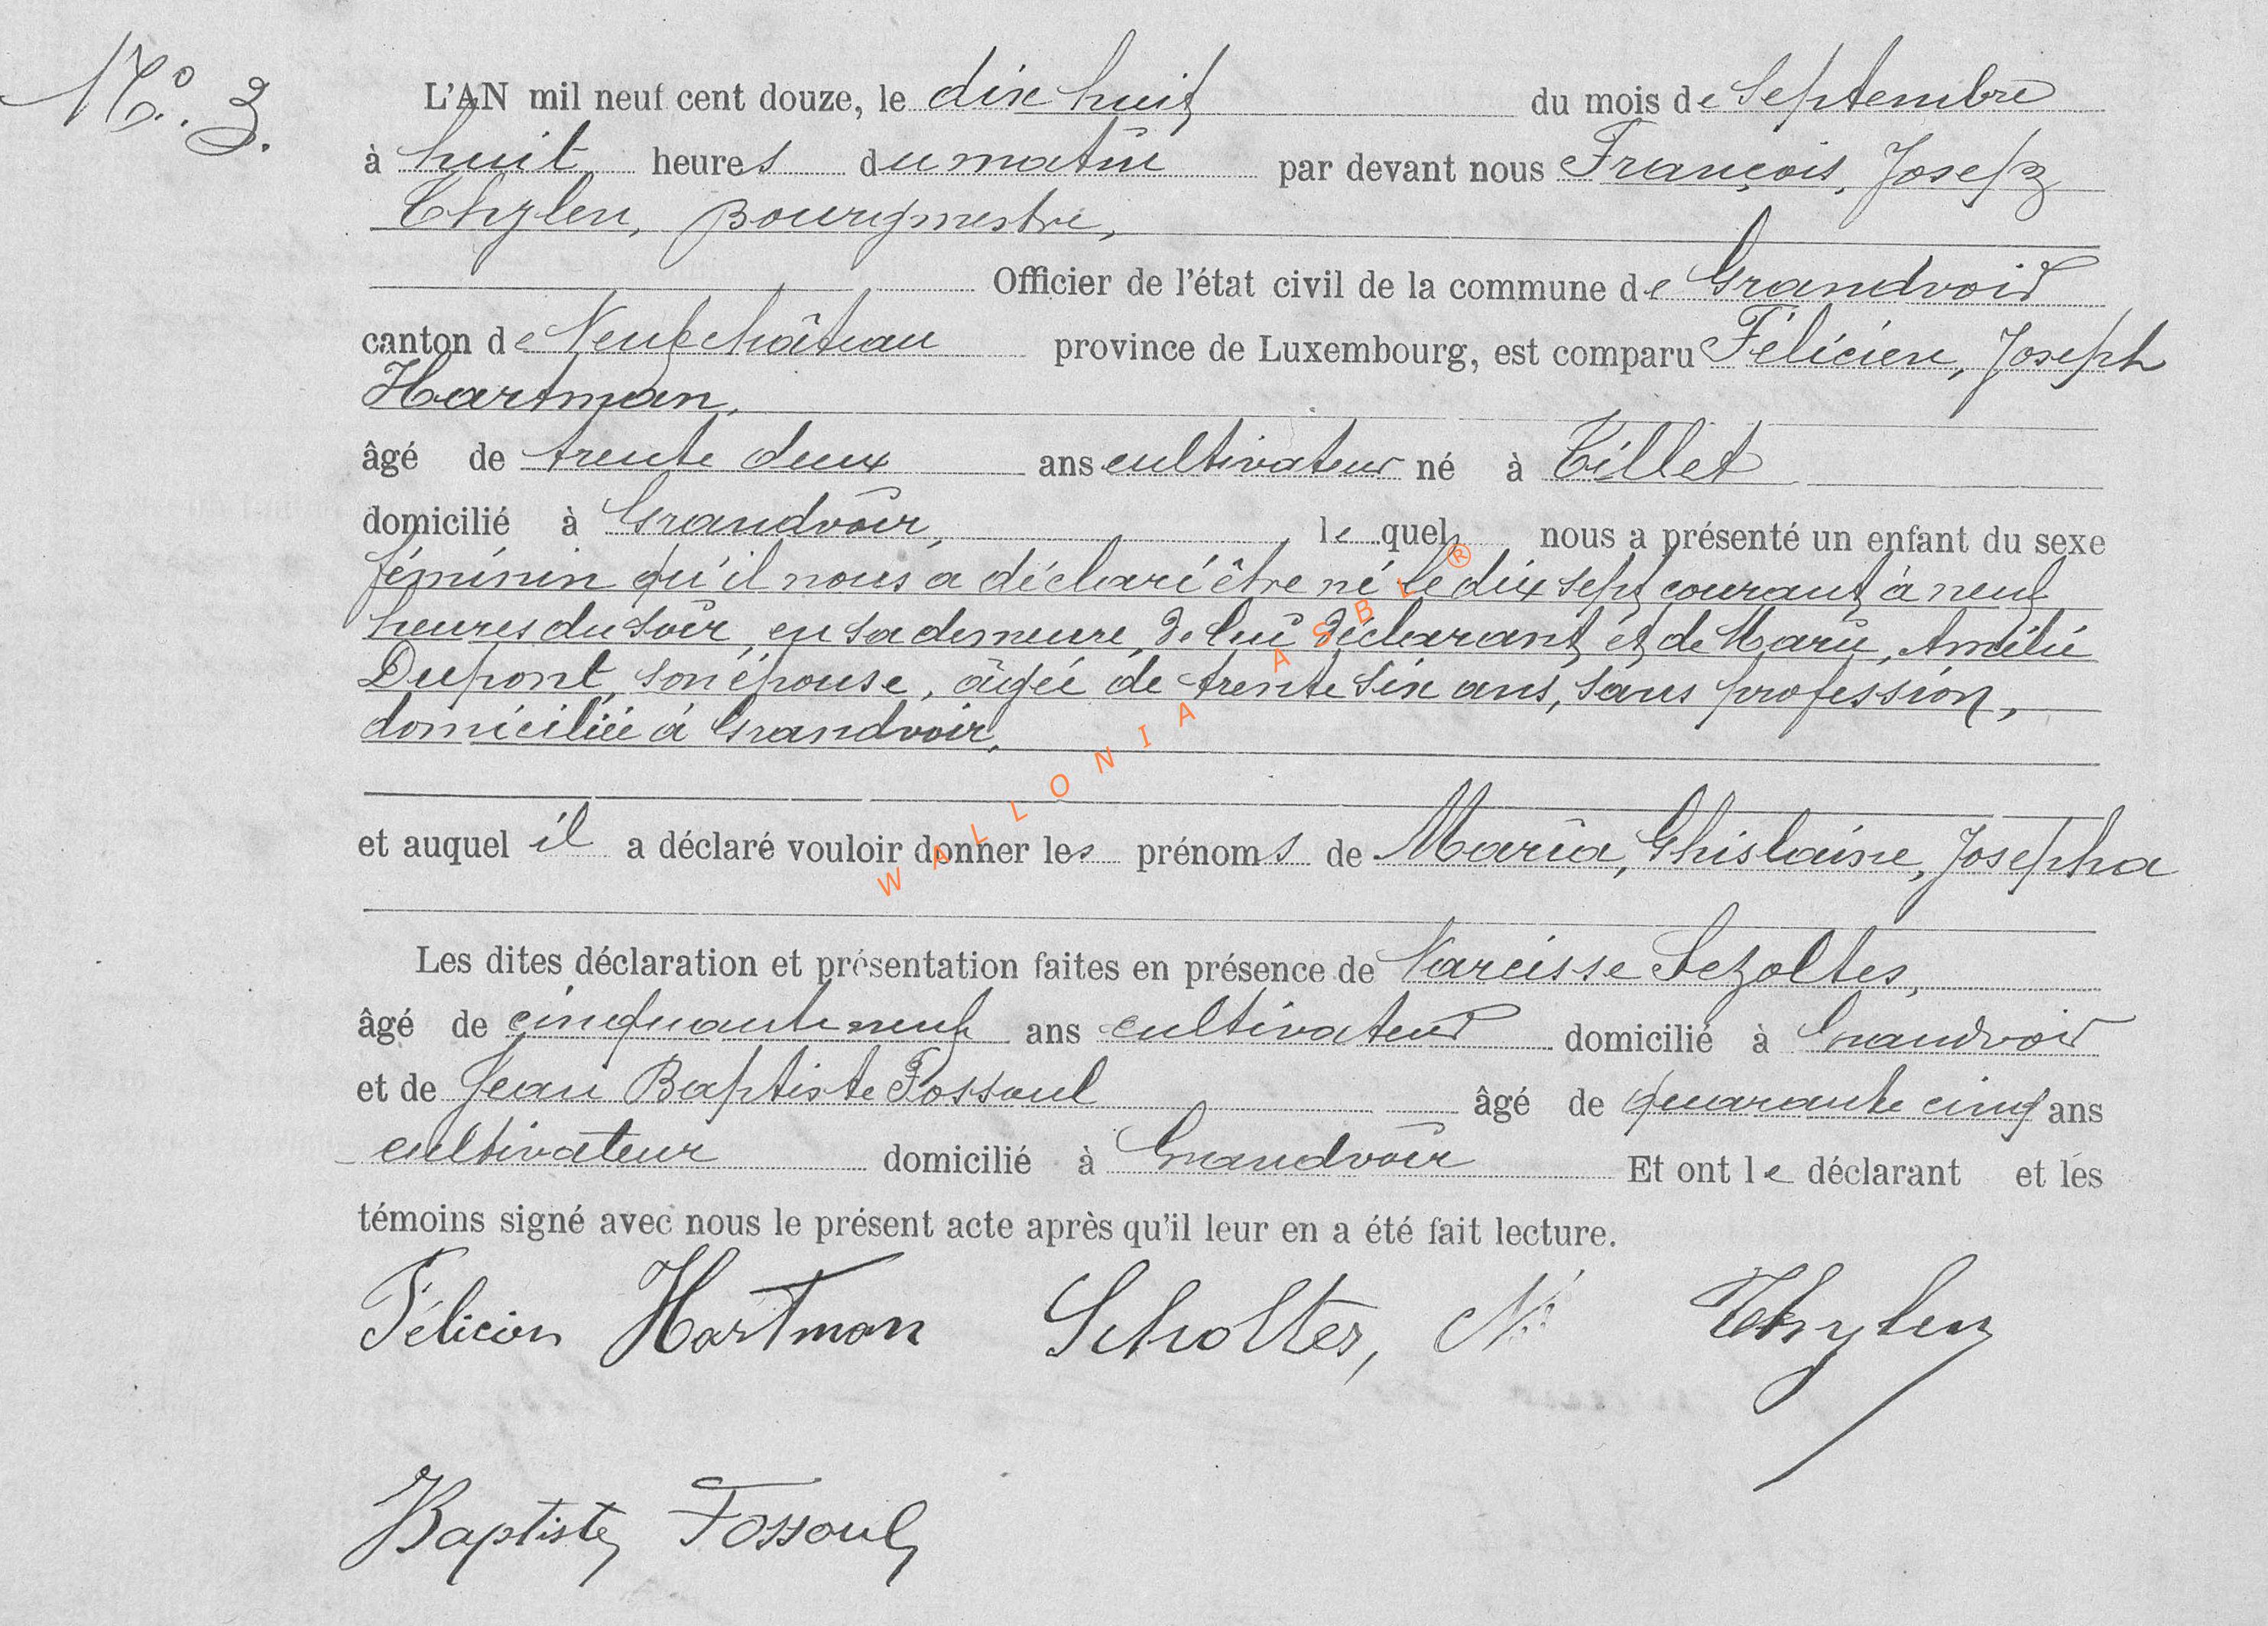 N° 3.
L'AN mil neuf cent douze, le dix huit du mois de Septembre
à huit heures du matin par devant nous François, Joseph
Thylen, Bourgmestre,
Officier de l'état civil de la commune de Grandvoir
canton de Neufchâteau province de Luxembourg, est comparu Félicien, Joseph
Hartman,
âgé de trente deux ans cultivateur né à Tillet
domicilié à Grandvoir, lequel nous a présenté un enfant du sexe
féminin qu'il nous a déclaré être né le dix sept courant à neuf
heures du soir, en sa demeure, de lui déclarant et de Marie, Amélie
Dupont, son épouse, âgée de trente six ans, sans profession,
domiciliée à Grandvoir,
et auquel il a déclaré vouloir donner les prénoms de Maria, Ghislaine, Josepha
Les dites déclaration et présentation faites en présence de Narcisse Scholtes,
âgé de cinquante neuf ans cultivateur domicilié à Grandvoir
et de Jean Baptiste Fossoul âgé de quarante cinq ans
cultivateur domicilié à Grandvoir Et ont le déclarant et les
témoins signé avec nous le présent acte après qu'il leur en a été fait lecture.
Félicien Hartman Scholtes, N. Thylen
Baptiste Fossoul
WALLONIA ASBL ®